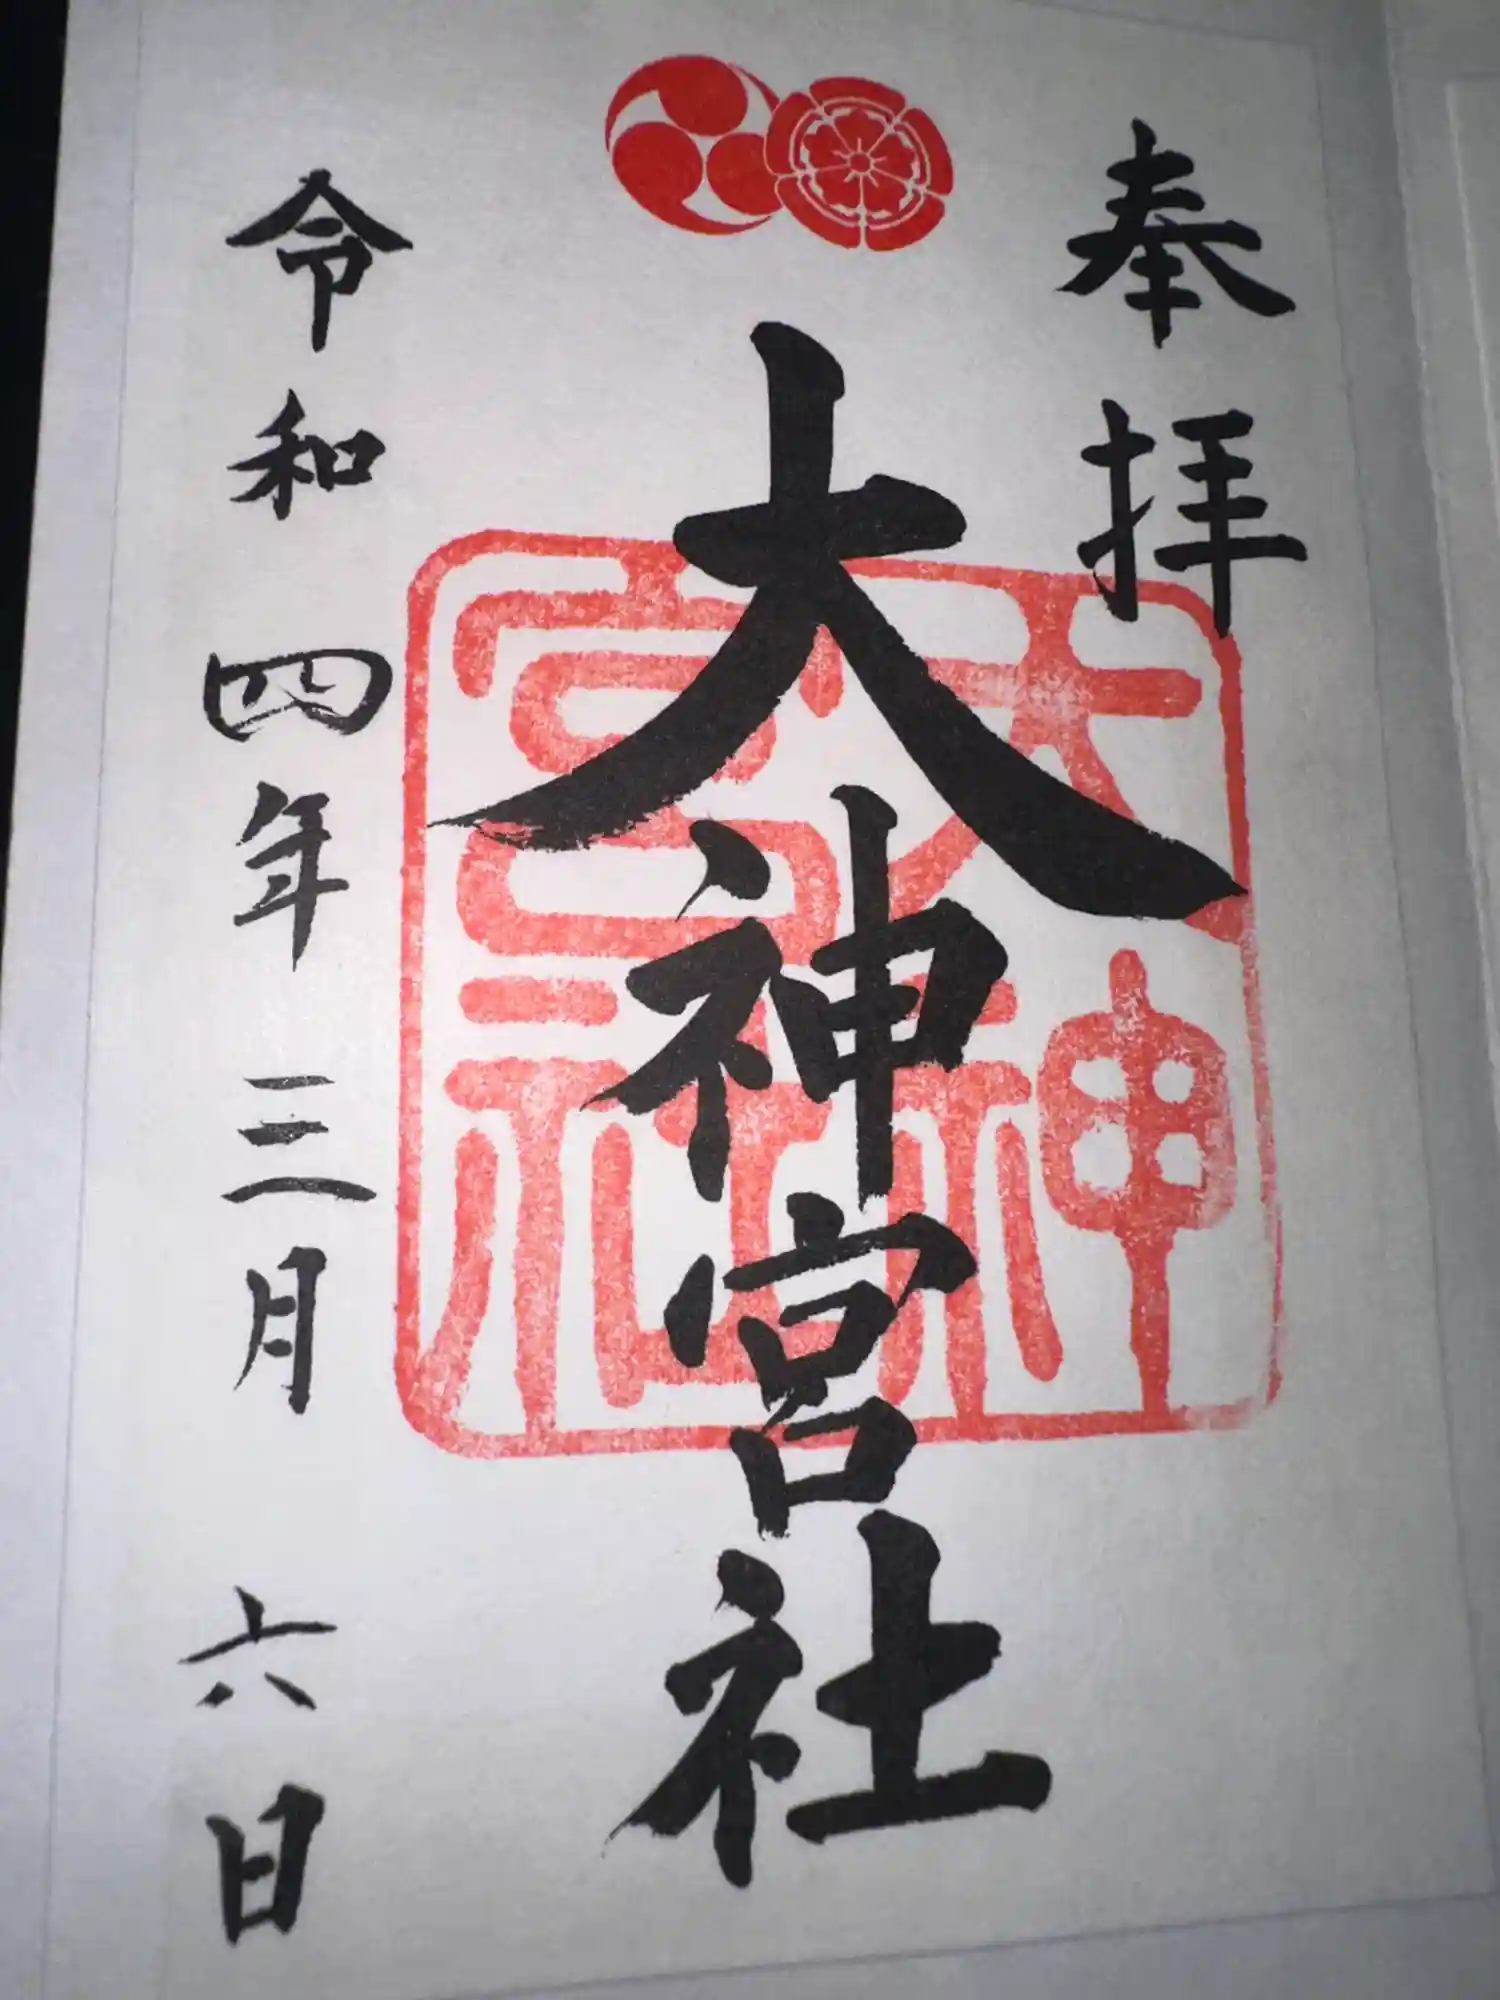 奉拝
大神宮社
大神宮社
令和四年三月六日